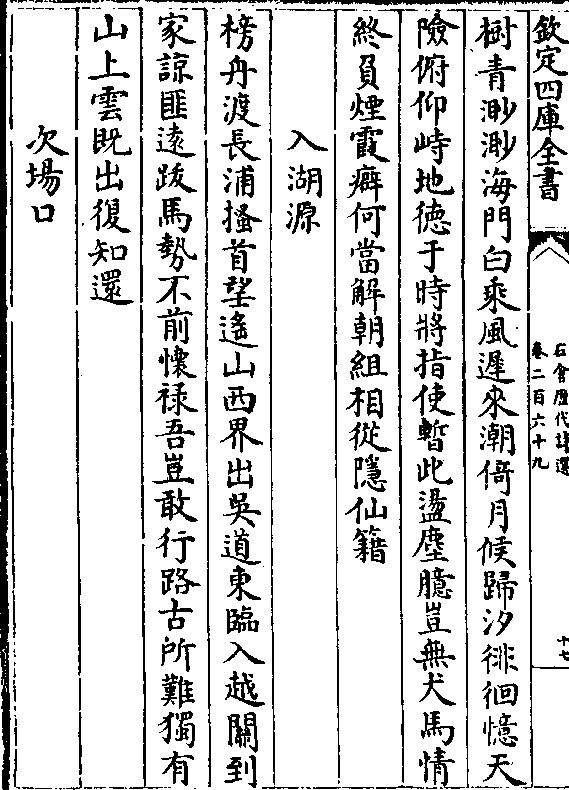 欽定四庫全書
石倉歷代詩選
卷二百六十九
十七
樹青渺渺海門白乘風遲來潮倚月候歸汐徘徊憶天
險俯仰峙地徳于時將指使暫此盪塵臆豈無犬馬情
終負煙霞癖何當解朝組相從隱仙籍
入湖源
榜舟渡長浦搔首望遙山西界出吳道東臨入越關到
家諒匪遠跋馬勢不前懷祿吾豈敢行路古所難獨有
山上雲既出復知還
次場口